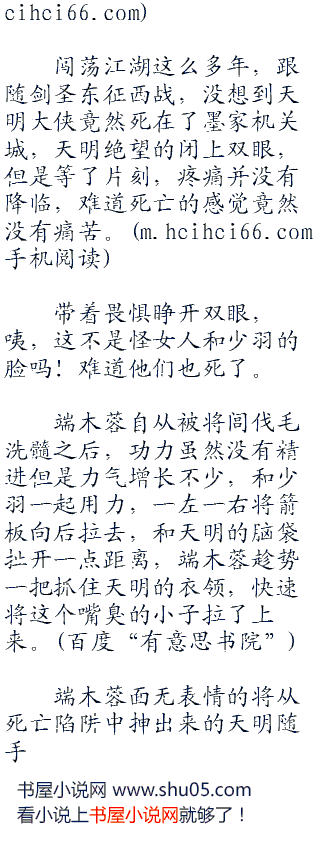 cihci66.com)
闯荡江湖这么多年，跟
随剑圣东征西战，没想到天
明大侠竟然死在了墨家机关
城，天明绝望的闭上双眼，
但是等了片刻，疼痛并没有
降临，难道死亡的感觉竟然
没有痛苦。(m.hcihci66.com
手机阅读)
带着畏惧睁开双眼，
咦，这不是怪女人和少羽的
脸吗！难道他们也死了。
端木蓉自从被将闾伐毛
洗髓之后，功力虽然没有精
进但是力气增长不少，和少
羽一起用力，一左一右将箭
板向后拉去，和天明的脑袋
扯开一点距离，端木蓉趁势
一把抓住天明的衣领，快速
将这个嘴臭的小子拉了上
来。(百度“有意思书院”)
端木蓉面无表情的将从
死亡陷阱中抻出来的天明随
手
书屋小说网 www.shu05.com
看小说上书屋小说网就够了！